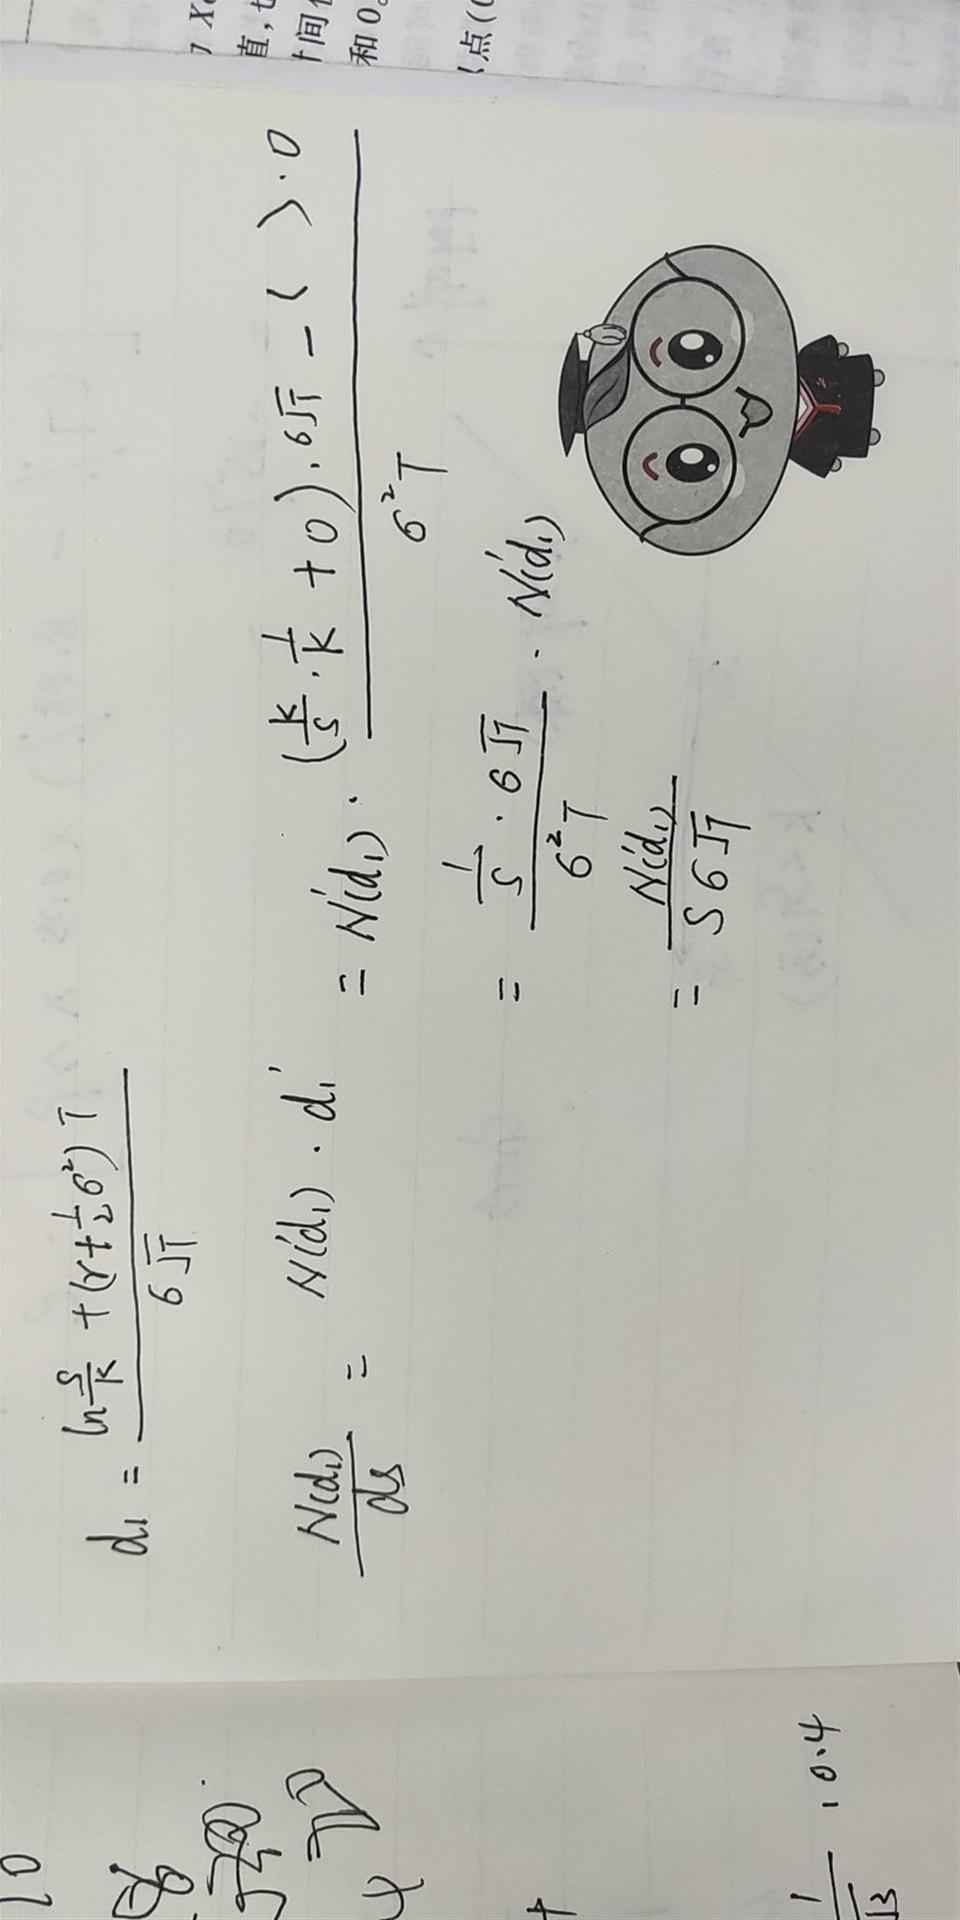 d₁ = (ln S/K + (r + 1/2 σ²) T) / (σ√T)
N(d₁)/ds = N'(d₁) · d₁' = N'(d₁) · ((K/S · 1/K + 0) · σ√T - ( ) · 0) / (σ²T)
= (1/S · σ√T) / (σ²T) · N'(d₁)
= N'(d₁) / (Sσ√T)
直,
间
和 0
点 (
10
1
· 0.4